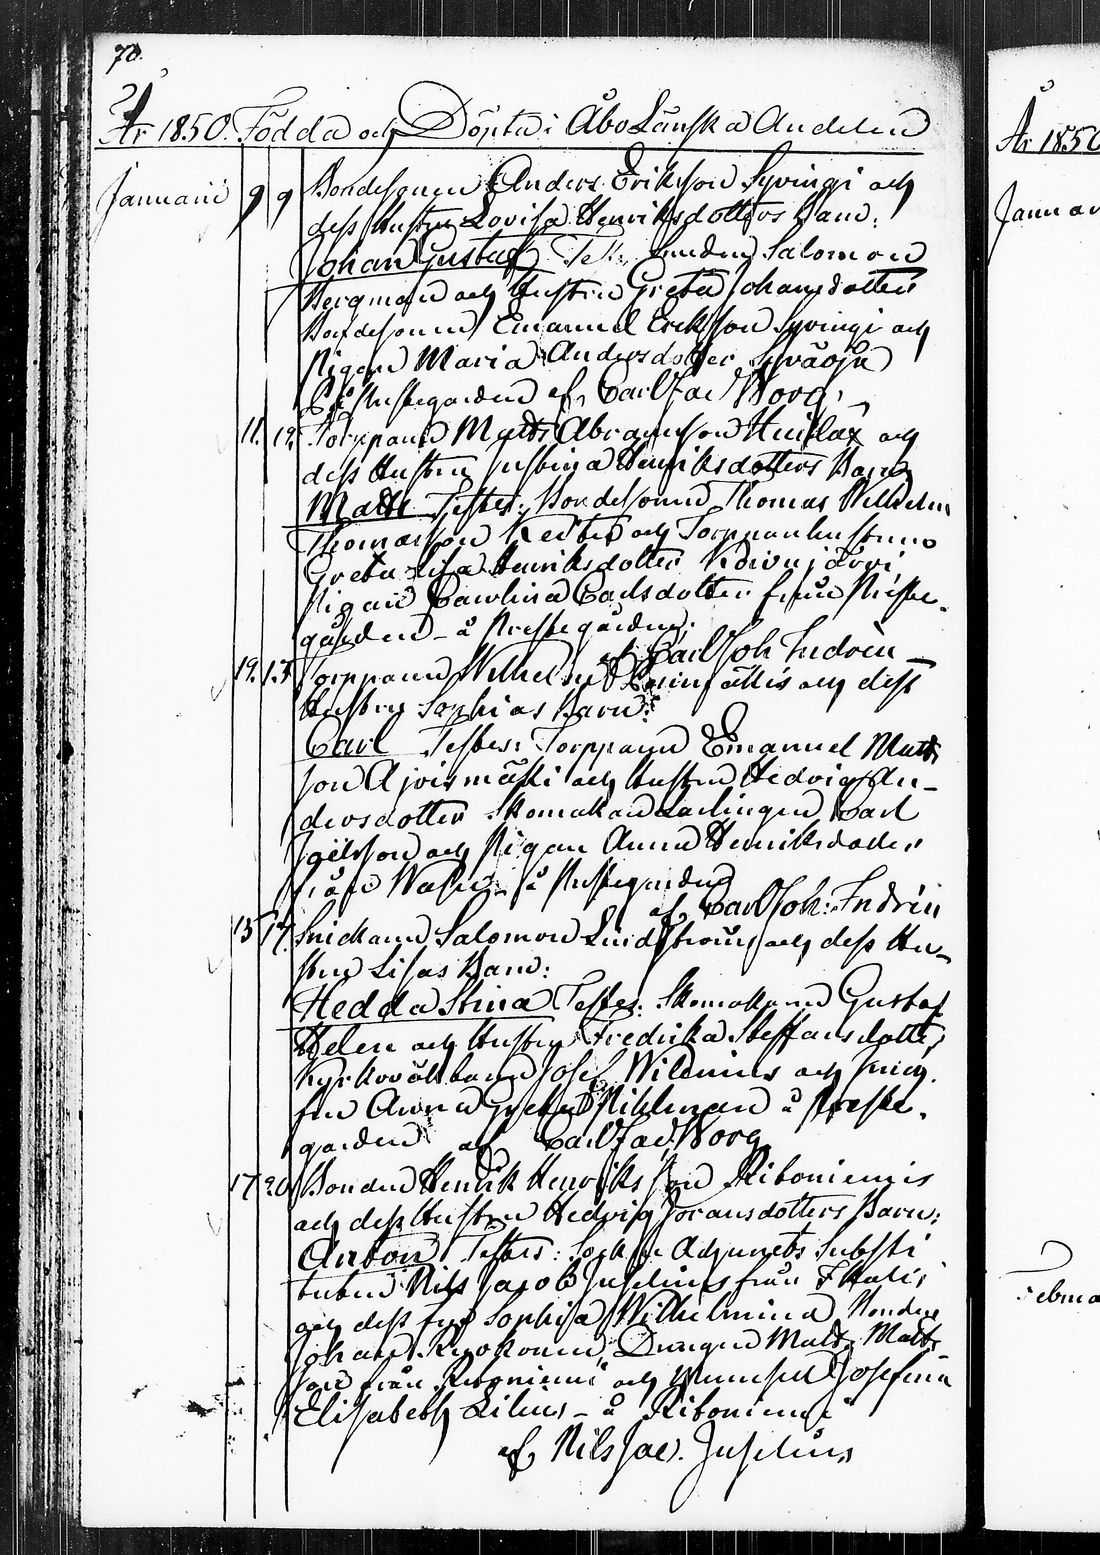 70.
År 1850. Födda och Döpta i Åbo Länska Andelen
Januarii 9 9 Bondesonen Anders Eriksson Syvingi och
dess Hustru Lovisa Henriksdotters Barn:
Johan Gustaf Test: Salomon
Bergman och Hustrun Greta Johansdotter
Bondesonen Emanuel Eriksson Syvingi och
Pigan Maria Andersdotter
Prestegarden af Carl Jac Borg.
11. 12. Torpparen Matts Abramsson och
dess Hustru Justina Henriksdotters Barn
Matts Testes: Bondesonen Thomas Wilhelm
Thomasson och Torpparehustrun
Greta Lisa Henriksdotter Koivujärvi
Pigan Carolina Carlsdotter från Preste-
gården - å Prestegården:
af Carl Joh Indrén
12. 13 Torpparen Wilhelm och dess
Hustru Sophias Barn:
Carl Testes: Torpparen Emanuel Matts
son Ajoismäki och Hustrun Hedvig An-
dersdotter Skomakare Lärlingen Carl
Joëlsson och Pigan Anna Henriksdotter
från - å Prestegarden
af Carl Joh: Indrén
13 17. Snickaren Salomon Lindström och dess Hu-
stru Lisas Barn:
Hedda Stina Testes: Skomakaren Gustaf
Helen och Hustrun Fredrika Steffansdotter,
Kyrkoväktaren Josef Wilenius och
Anna Greta å Preste-
garden af Carl Jac Borg
17 20 Bonden Henrik Henriksson Riboniemis
och dess Hustru Hedvig Joransdotters Barn:
Anton Testes: Adjuncts Substi
tuten Nils Jacob Juselius från
och dess fru Sophia Wilhelmina Bonden
Johan Drängen Matts Matts-
son från Riboniemi och Mamsell Josefina
Elisabeth Lilius - å Riboniemi
af Nils Jac. Juselius
År 1850
Januari
Februa